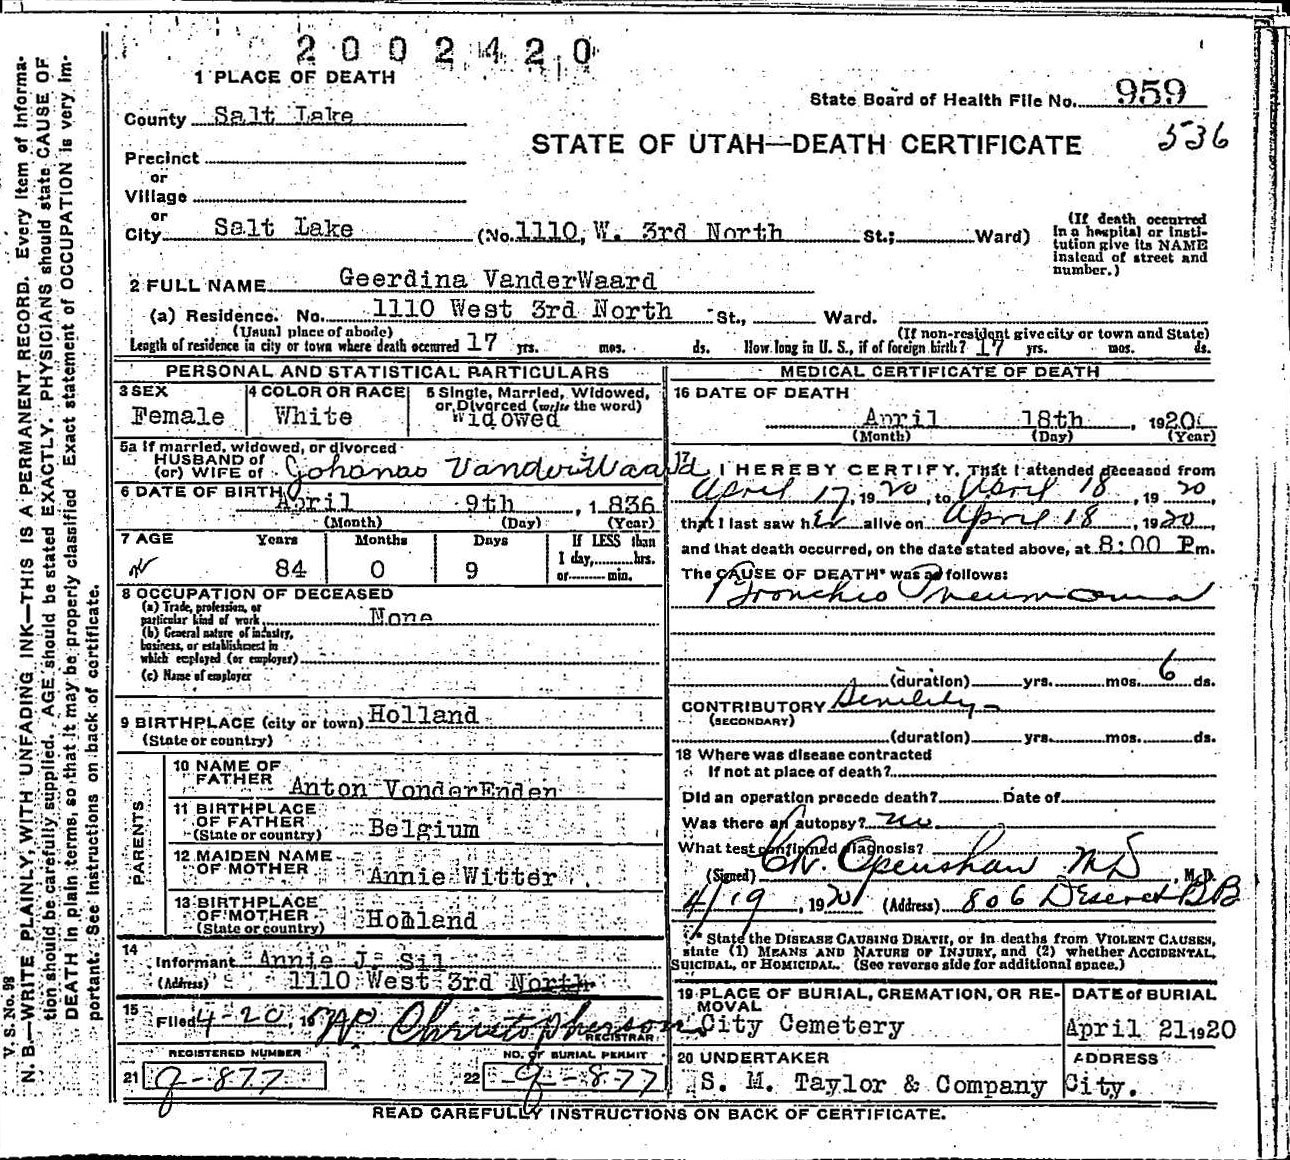 2002420
1 PLACE OF DEATH
State Board of Health File No. 959
County Salt Lake
STATE OF UTAH—DEATH CERTIFICATE 536
Precinct
or
Village
or
City Salt Lake (No. 1110, W. 3rd North St.; Ward)
(If death occurred in a hospital or insti-
tution give its NAME
instead of street and
number.)
2 FULL NAME Geerdina VanderWaard
(a) Residence. No. 1110 West 3rd North St., Ward.
(Usual place of abode) (If non-resident give city or town and State)
Length of residence in city or town where death occurred 17 yrs. mos. ds. How long in U. S., if of foreign birth? 17 yrs. mos. ds.
PERSONAL AND STATISTICAL PARTICULARS
3 SEX Female
4 COLOR OR RACE White
5 Single, Married, Widowed,
or Divorced (write the word)
Widowed
5a If married, widowed, or divorced
HUSBAND of
(or) WIFE of Johanas VanderWaard
6 DATE OF BIRTH April 9th, 1836
(Month) (Day) (Year)
7 AGE Years Months Days If LESS than
1 day, hrs.
84 0 9 or min.
8 OCCUPATION OF DECEASED
(a) Trade, profession, or
particular kind of work None
(b) General nature of industry,
business, or establishment in
which employed (or employer)
(c) Name of employer
9 BIRTHPLACE (city or town) Holland
(State or country)
PARENTS
10 NAME OF
FATHER Anton VonderEnden
11 BIRTHPLACE
OF FATHER Belgium
(State or country)
12 MAIDEN NAME
OF MOTHER Annie Witter
13 BIRTHPLACE
OF MOTHER Holland
(State or country)
14
Informant Annie J. Sil
(Address) 1110 West 3rd North
15 Filed 4-20, 19 W Christopherson
REGISTRAR
REGISTERED NUMBER NO. OF BURIAL PERMIT
21 g-877 22 g-877
MEDICAL CERTIFICATE OF DEATH
16 DATE OF DEATH
April 18th, 1920
(Month) (Day) (Year)
17 I HEREBY CERTIFY, That I attended deceased from
April 17, 1920, to April 18, 1920,
that I last saw her alive on April 18, 1920,
and that death occurred, on the date stated above, at 8:00 P m.
The CAUSE OF DEATH* was as follows:
Bronchio Pneumonia
(duration) yrs. mos. 6 ds.
CONTRIBUTORY Senility
(SECONDARY)
(duration) yrs. mos. ds.
18 Where was disease contracted
If not at place of death?
Did an operation precede death? Date of
Was there an autopsy? no
What test confirmed diagnosis?
(Signed) Openshaw MD, M.D.
4/19, 1920 (Address) 806 Deseret BB
* State the DISEASE CAUSING DEATH, or in deaths from VIOLENT CAUSES,
state (1) MEANS AND NATURE OF INJURY, and (2) whether ACCIDENTAL,
SUICIDAL, or HOMICIDAL. (See reverse side for additional space.)
19 PLACE OF BURIAL, CREMATION, OR RE-
MOVAL
City Cemetery
DATE of BURIAL
April 21 1920
20 UNDERTAKER
S. M. Taylor & Company
ADDRESS
City.
READ CAREFULLY INSTRUCTIONS ON BACK OF CERTIFICATE.
V. S. No. 98
N. B.—WRITE PLAINLY, WITH UNFADING INK—THIS IS A PERMANENT RECORD. Every item of informa-
tion should be carefully supplied. AGE should be stated EXACTLY. PHYSICIANS should state CAUSE OF
DEATH in plain terms, so that it may be properly classified Exact statement of OCCUPATION is very im-
portant. See instructions on back of certificate.